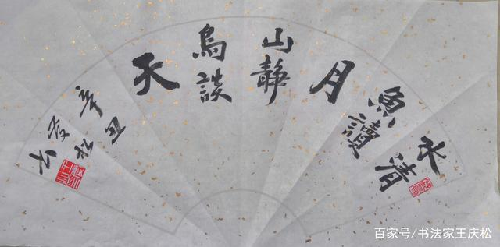 水清
魚讀
月
山靜
鳥談
天
辛丑
百家号/书法家王庆松